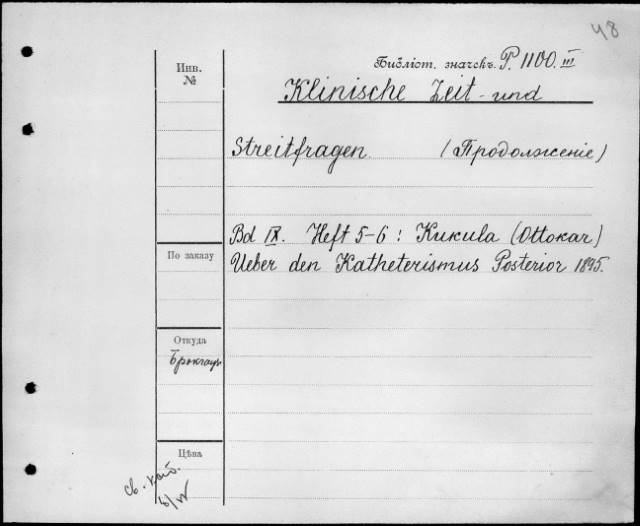 48
Библіот. значекъ. P. 1100. III
Инв.
№
Klinische Zeit- und
Streitfragen. (Продолженіе)
Bd IX. Heft 5-6: Kukula (Ottokar)
По заказу
Ueber den Katheterismus Posterior 1895.
Откуда
Цѣна
св.